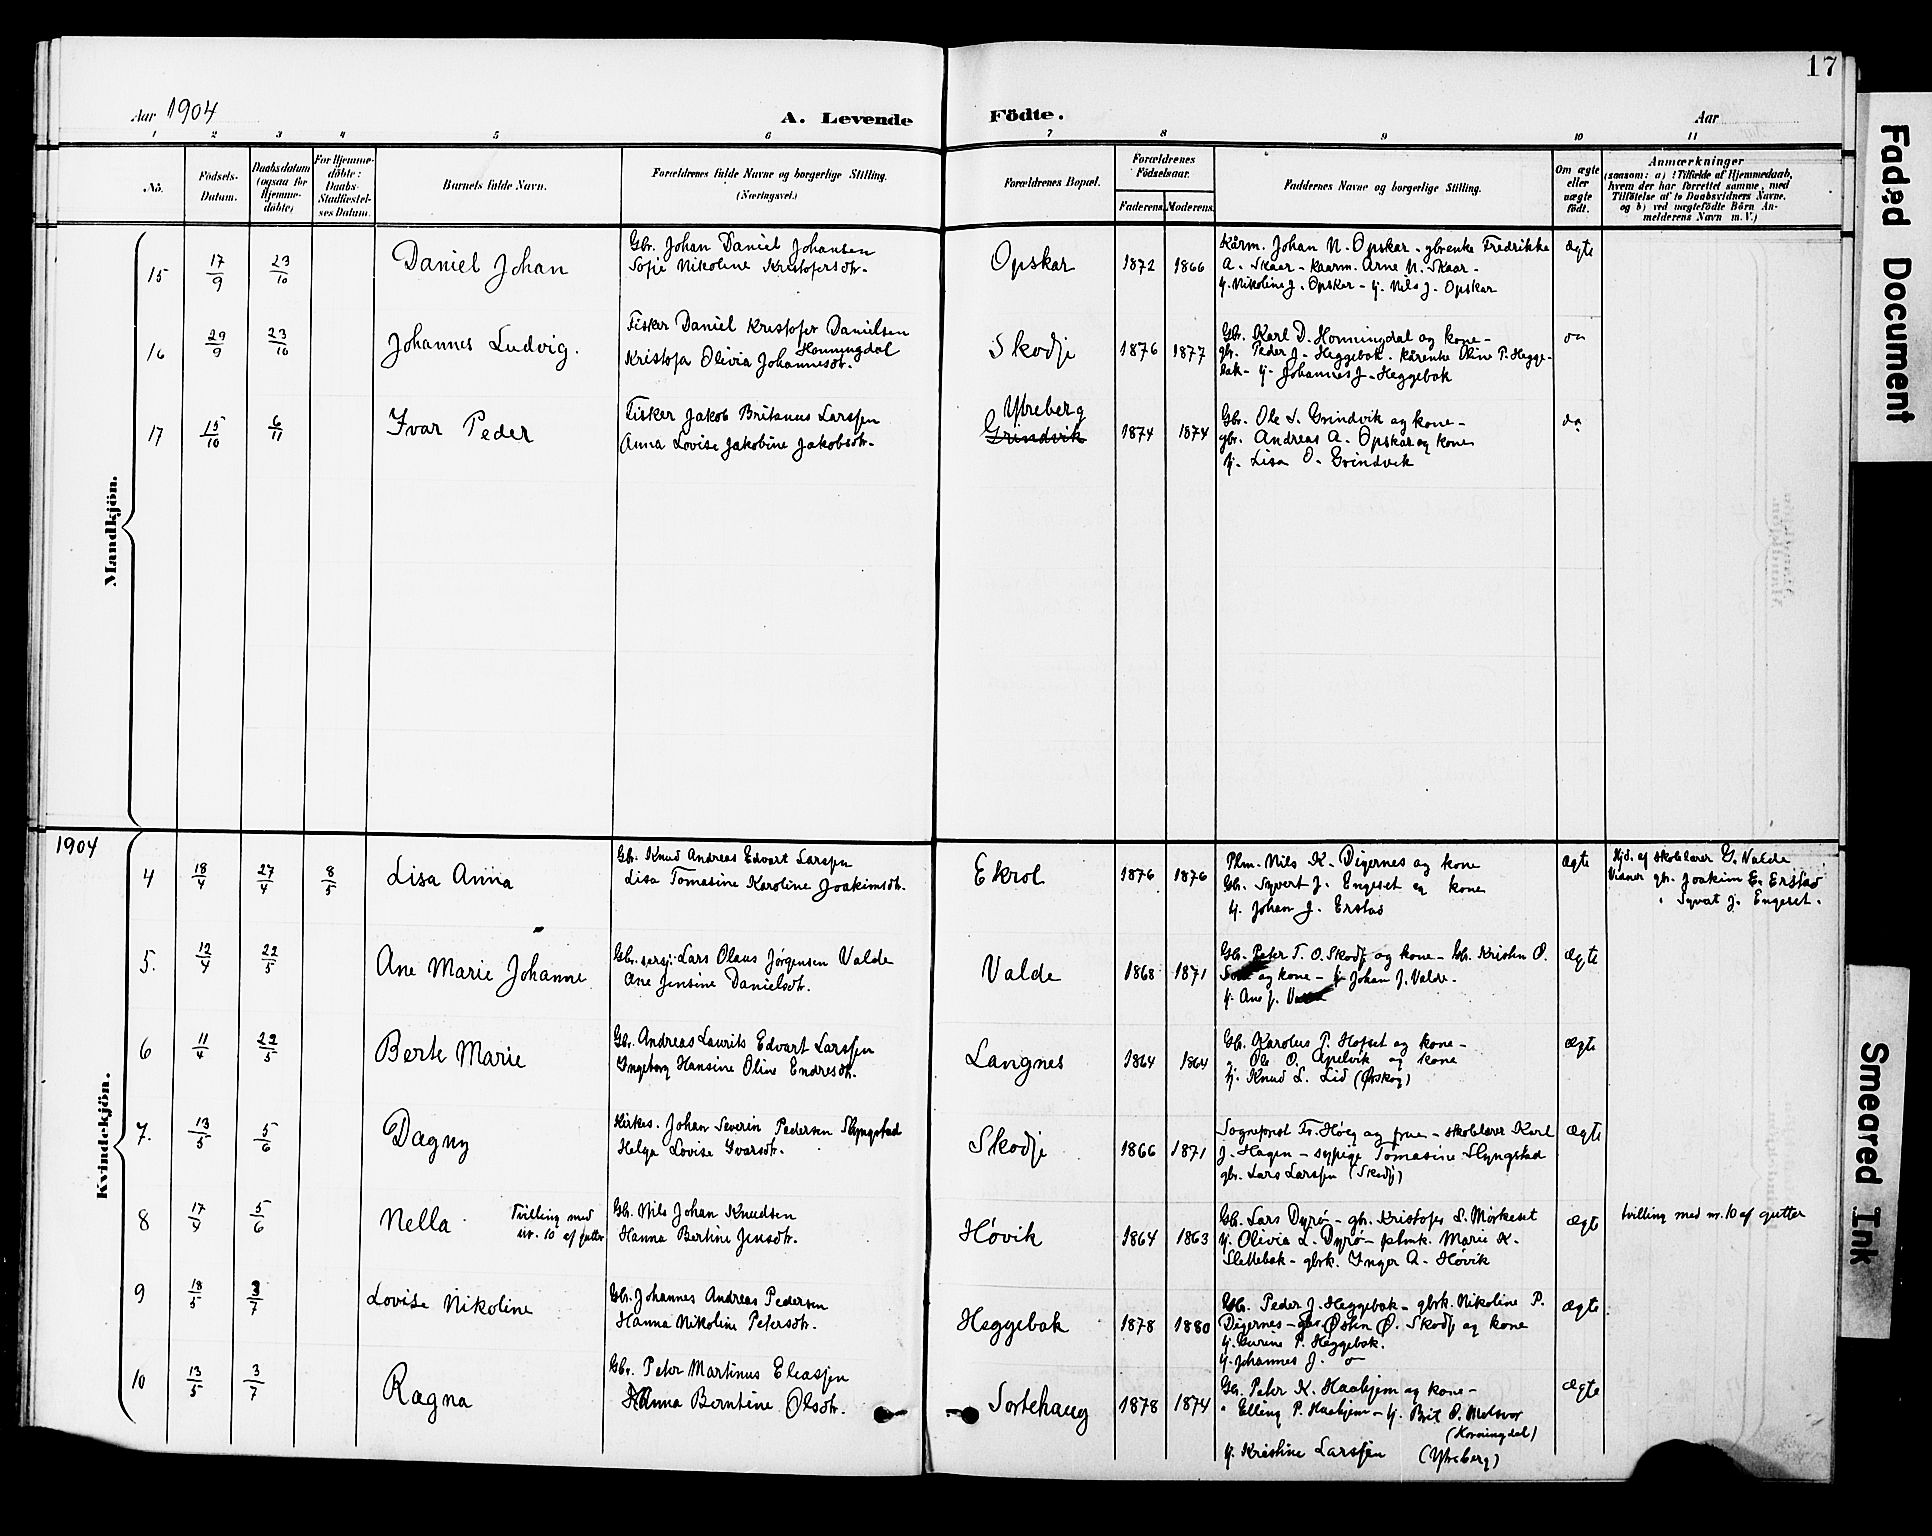 17
Aar 1904
A. Levende Födte.
Aar
1 2 3 4 5 6 7 8 9 10 11
No.
Födsels-
Datum.
Daabsdatum
(ogsaa for
Hjemme-
döbte)
For Hjemme-
döbte:
Daabs-
Stadfæstel-
ses Datum.
Barnets fulde Navn.
Forældrenes fulde Navne og borgerlige Stilling.
(Næringsvei.)
Forældrenes Bopæl.
Forældrenes
Födselsaar.
Faderens. Moderens.
Faddernes Navne og borgerlige Stilling.
Om ægte
eller
uægte
födt.
Anmærkninger
(saasom: a) i Tilfælde af Hjemmedaab,
hvem der har forrettet samme, med
Tilföielse af to Daabsvidners Navne,
og b) ved uægtefödte Börn An-
melderens Navn m. V.)
Mandkjön.
15 17/9 23/10 Daniel Johan
Gbr. Johan Daniel Johansen
Sofie Nikoline Kristofersdtr.
Opskar 1872 1866
Kårm. Johan N. Opskar - gbrenke Fredrikke
A. Skaar - kaarm. Arne N. Skaar -
y. Nikoline J. Opskar - y. Nils J. Opskar
ægte
16 29/9 23/10 Johannes Ludvig.
Fisker Daniel Kristofer Danielsen
Honningdal
Kristofa Olivia Johannesdtr.
Skodje 1876 1877
Gbr. Karl D. Honningdal og kone -
gbr. Peder J. Heggebak. kårenke Oline P. Hegge-
bak - y. Johannes J. Heggebak
do
17 15/10 6/11 Ivar Peder
Fisker Jakob Britanus Larssen
Anna Lovise Jakobine Jakobsdtr.
Ytreberg
Grindvik
1874 1874
Gbr. Ole S. Grindvik og kone -
gbr. Andreas A. Opskar og kone
y. Lisa O. Grindvik
do
Kvindekjön.
1904
4 18/4 27/4 8/5 Lisa Anna
Gbr. Knud Andreas Edvart Larssen
Lisa Tomasine Karoline Joakimsdtr.
Ekrol 1876 1876
Plm. Nils K. Digernes og kone
Gbr. Syvert J. Engeset og kone
y. Johan J. Erstad
ægte
Hjd. af skolelærer G. Valde
Vidner gbr. Joakim E. Erstad
" Syvert J. Engeset.
5. 12/4 22/5 Ane Marie Johanne
Gbr. Lars Olaus Jørgensen Valde
Ane Jensine Danielsdtr.
Valde 1868 1871
Gbr. Peter T. O. Skodj og kone - Gbr. Kristen O.
og kone - y. Johan J. Valde.
y. Ane J.
ægte
6 11/4 22/5 Berte Marie
Gbr. Andreas Laurits Edvart Larssen
Ingeborg Hansine Oline Endresdtr.
Langnes 1864 1864
Gbr. Karolus P. Hofset og kone -
" Ole O. Apelvik og kone
y. Knud L. Lid (Ørskog)
ægte
7. 13/5 5/6 Dagny
Kirkes. Johan Severin Pedersen Slyngstad
Helga Lovise Ivarsdtr.
Skodje 1866 1871
Sogneprest Fr. Høeg og frue - skolelærer Karl
J. Hagen - sypige Tomasine Slyngstad
gbr. Lars Larssen (Skodj)
ægte
8 17/4 5/6 Nella
Tvilling med
nr. 10 af gutter
Gbr. Nils Johan Knudsen
Hanna Bertine Jensdtr.
Høvik 1864 1863
Gbr. Lars Dyrø - gbr. Kristofer S. Mørkeset
y. Olivia L. Dyrø - plmk. Marie K.
Slettebak - gbrk. Inger A. Høvik
ægte
tvilling med nr. 10 af gutter
9 18/5 3/7 Lovise Nikoline
Gbr. Johannes Andreas Pedersen
Hanna Nikoline Petersdtr.
Heggebak 1878 1880
Gbr. Peder J. Heggebak - gbrk. Nikoline P.
Digernes - gbr. Østen Ø. Skodj og kone
y. Gurine P. Heggebak.
y. Johannes J. do
ægte
10 13/5 3/7 Ragna
Gbr. Peter Martinus Eleassen
Anna Berntine Olsdtr.
Sortehaug 1878 1874
Gbr. Peter K. Haahjem og kone -
" Elling P. Haahjem - y. Brit P. Melsvor
(Honningdal)
y. Kristine Larssen (Ytreberg)
ægte
Faded Document
Smeared Ink